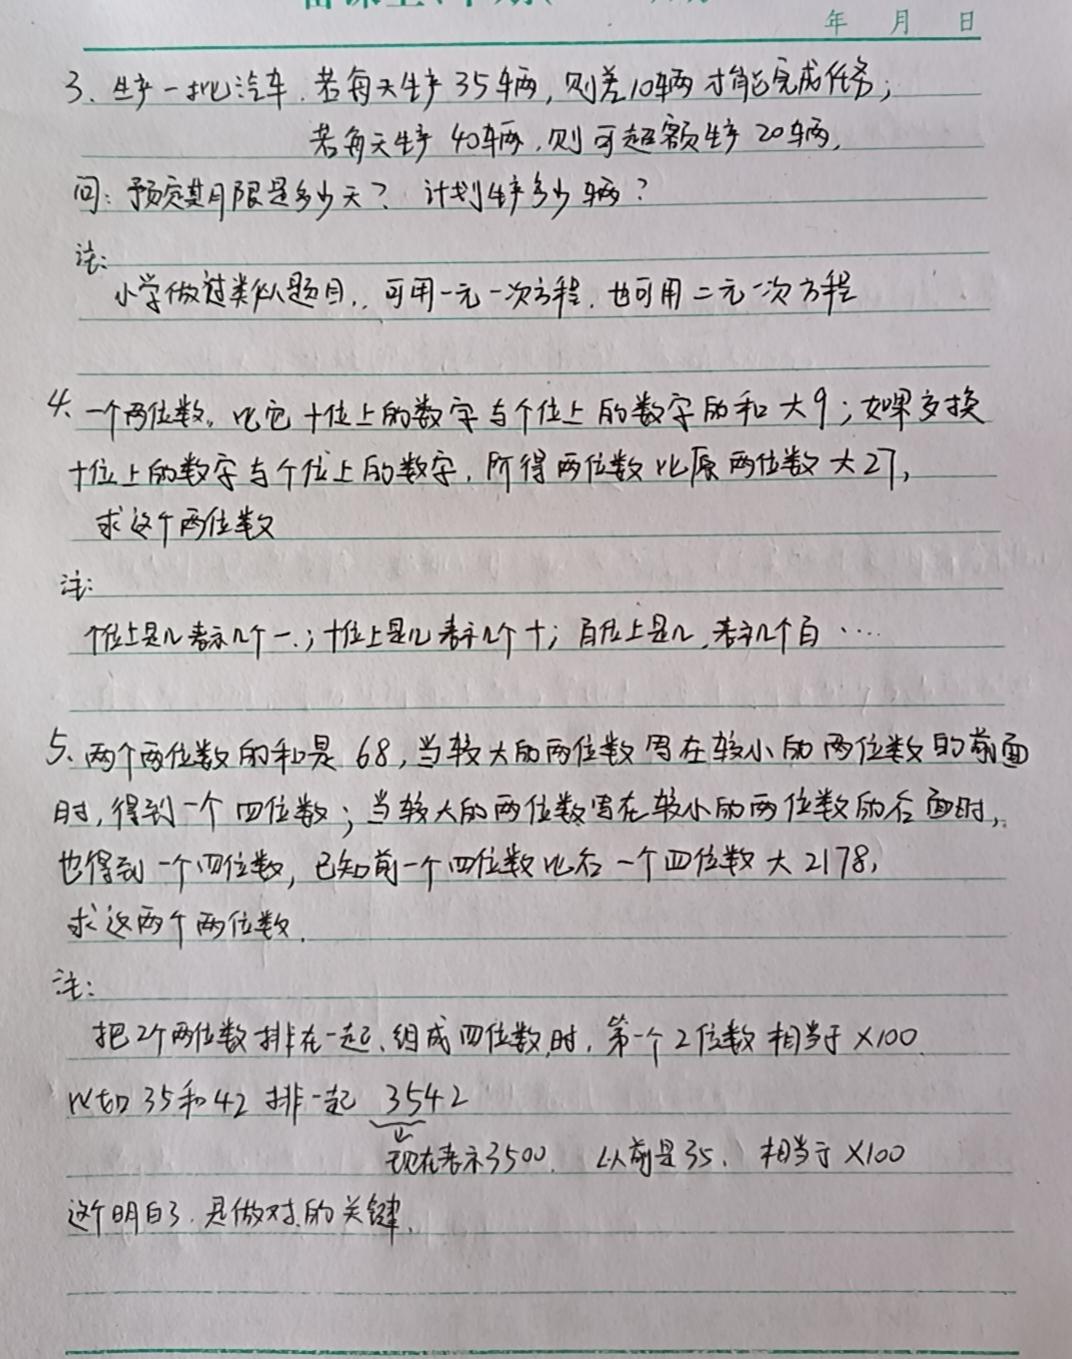 年 月 日
3、生产一批汽车.若每天生产35辆,则差10辆才能完成任务;
若每天生产40辆,则可超额生产20辆.
问:预定期限是多少天? 计划生产多少辆?
注:
小学做过类似题目,可用一元一次方程.也可用二元一次方程
4、一个两位数。比它十位上的数字与个位上的数字的和大9;如果交换
十位上的数字与个位上的数字,所得两位数比原两位数大27,
求这个两位数
注:
个位上是几表示几个一.;十位上是几表示几个十;百位上是几.表示几个百····
5、两个两位数的和是68,当较大的两位数写在较小的两位数的前面
时,得到一个四位数;当较大的两位数写在较小的两位数的后面时,
也得到一个四位数,已知前一个四位数比后一个四位数大2178,
求这两个两位数.
注:
把2个两位数排在一起、组成四位数时.第一个2位数相当于×100
比如35和42排一起 3542
现在表示3500. 以前是35. 相当于×100
这个明白了.是做对的关键.